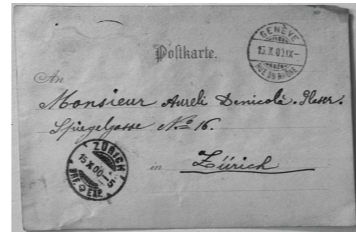 Postkarte.
GENÈVE
15.X.00 IX-
RUE DU RHÔNE
An
Monsieur Aureli Denicolà.
Spiegelgasse No 16.
in Zürich
ZÜRICH
15.X.00.-5
BRF. EXP.